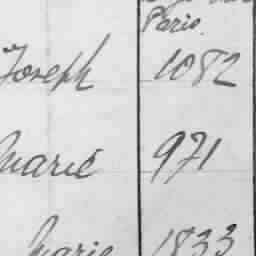 Paris.
Joseph 1082
Marie 971
Marie 1833